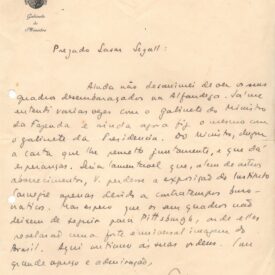 Gabinete do
Ministro
Prezado Lasar Segall:
Ainda não descansei de ver os seus
quadros desembaraçados na Alfandega. Já me
entendi varias vezes com o gabinete do Ministro
da Fazenda e ainda agora fiz o mesmo com
o gabinete da Presidencia. Do Ministro,
a carta que lhe remetto juntamente, e que dá
esperanças. Seria lamentavel que, alem de outros
aborrecimentos, V. perdesse a exposição do Instituto
Carnegie apenas devido a contratempos buro-
craticos. Mas espero que os seus quadros não
deixem de seguir para Pittsburgh, onde elles
revelarão uma forte e universal imagem do
Brasil. Aqui estamos ás suas ordens. Um
grande apreço e admiração,